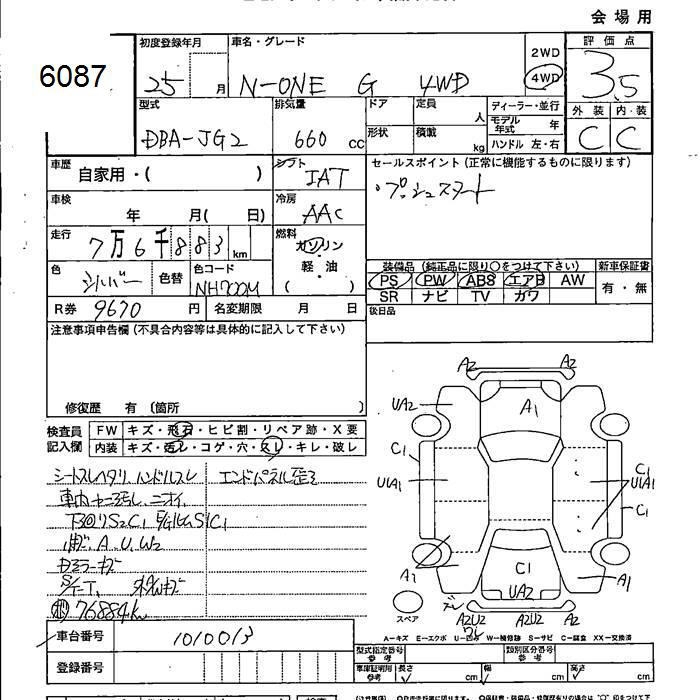 会場用
6087
初度登録年月
25
月
車名・グレード
N-ONE G 4WD
2WD
4WD
評価点
3.5
型式
DBA-JG2
排気量
660 cc
ドア
定員
人
形状
積載
kg
ディーラー・並行
モデル年式 年
ハンドル 左・右
外装 内・装
C C
車歴
自家用・( )
シフト
IAT
セールスポイント (正常に機能するものに限ります)
・プッシュスタート
車検
年 月( 日)
冷房
AAC
走行
7万6千883 km
燃料
ガソリン
・
軽・油
( )
色
シルバー
色替
色コード
NH700M
装備品 (純正品に限り○をつけて下さい)
新車保証書
PS PW ABS エアB AW
SR ナビ TV カワ
有・無
R券 9670 円
名変期限 月 日
後日品
注意事項申告欄 (不具合内容等は具体的に記入して下さい)
修復歴 有 〔箇所 〕
検査員
記入欄
FW キズ・飛石・ヒビ割・リペア跡・X要
内装 キズ・汚レ・コゲ・穴・スレ・キレ・破レ
シートスレヘタリ、ハンドルスレ
エンドパネル歪ミ
車内ヤニ汚レ、ニオイ
A、U、W2
76884km
A2
A2
UA2
A1
C1
U1A1
C1
U1A1
C1
A2
C1
UA2
A1
スペア
A2U2
A2U2
A2
A=キズ E=エクボ U=凹み W=補修跡 S=サビ C=腐食 XX=交換済
車台番号
1010013
登録番号
型式指定番号
参考
類別区分番号
参考
車庫証明用
参考
長さ
cm
幅
cm
高さ
cm